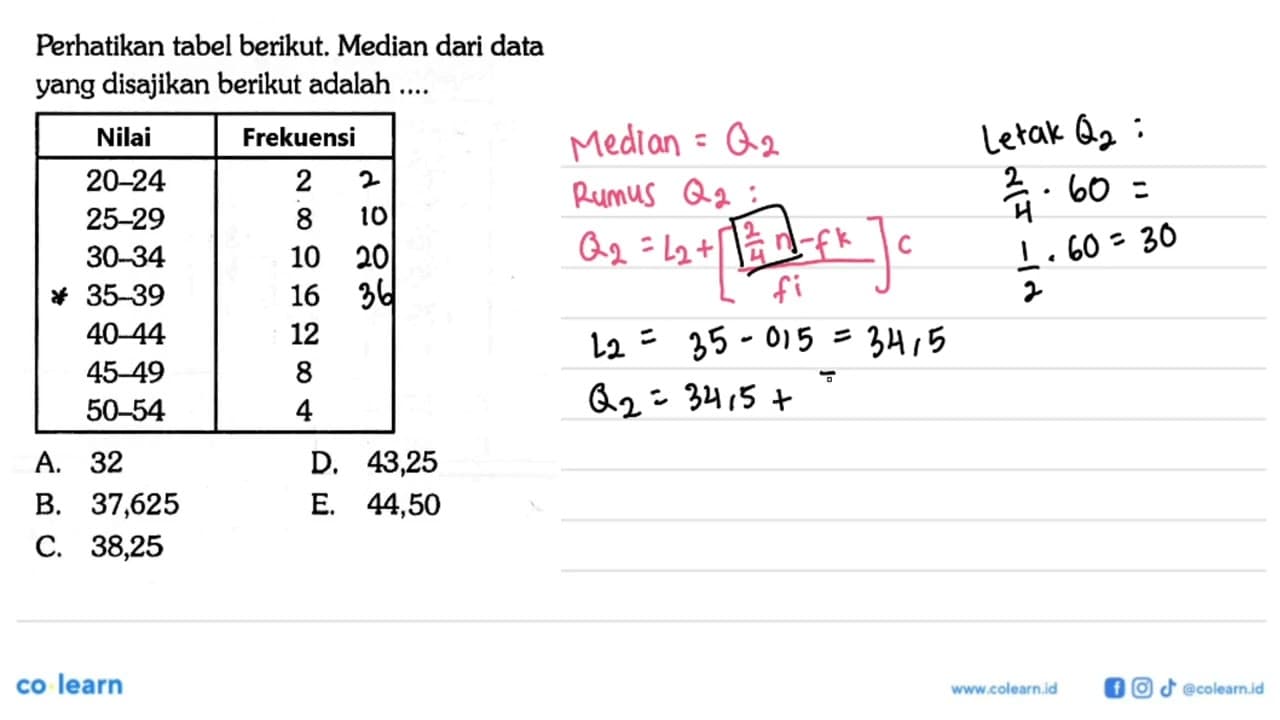 Perhatikan tabel berikut. Median dari data
yang disajikan berikut adalah ....
Nilai Frekuensi
20–24 2 2
25–29 8 10
30–34 10 20
* 35–39 16 36
40–44 12
45–49 8
50–54 4
A. 32
B. 37,625
C. 38,25
D. 43,25
E. 44,50
Median = Q2
Rumus Q2 :
Q2 = L2 + [ 2/4 n - fk / fi ] c
L2 = 35 - 0,5 = 34,5
Q2 = 34,5 +
Letak Q2 :
2/4 . 60 =
1/2 . 60 = 30
co learn
www.colearn.id
@colearn.id